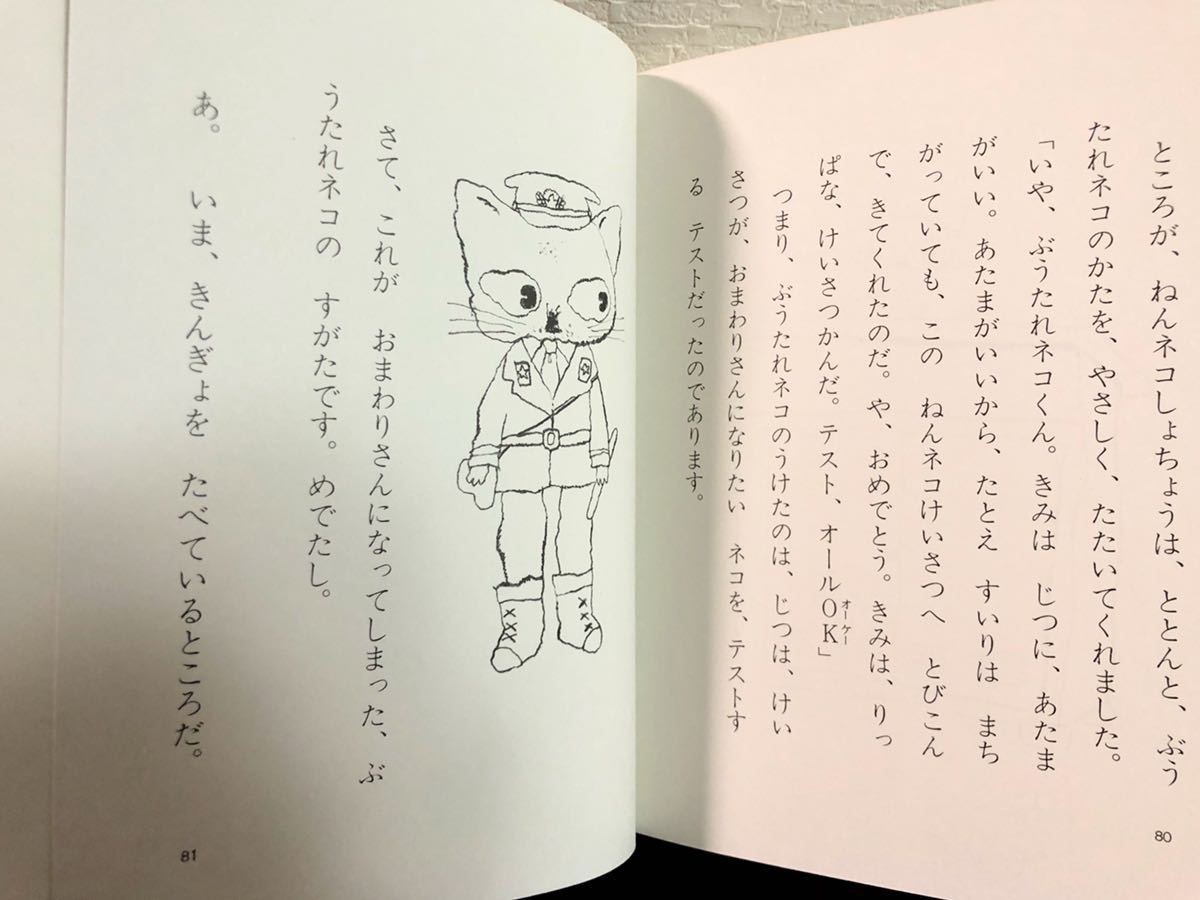 ところが、ねんネコしょちょうは、ととんと、ぶう
たれネコのかたを、やさしく、たたいてくれました。
「いや、ぶうたれネコくん。きみは じつに、あたま
がいい。あたまがいいから、たとえ すいりは まち
がっていても、この ねんネコけいさつへ とびこん
で、きてくれたのだ。や、おめでとう。きみは、りっ
ぱな、けいさつかんだ。テスト、オールOK」
オーケー
つまり、ぶうたれネコのうけたのは、じつは、けい
さつが、おまわりさんになりたい ネコを、テストす
る テストだったのであります。
80
さて、これが おまわりさんになってしまった、ぶ
うたれネコの すがたです。めでたし。
あ。 いま、きんぎょを たべているところだ。
81